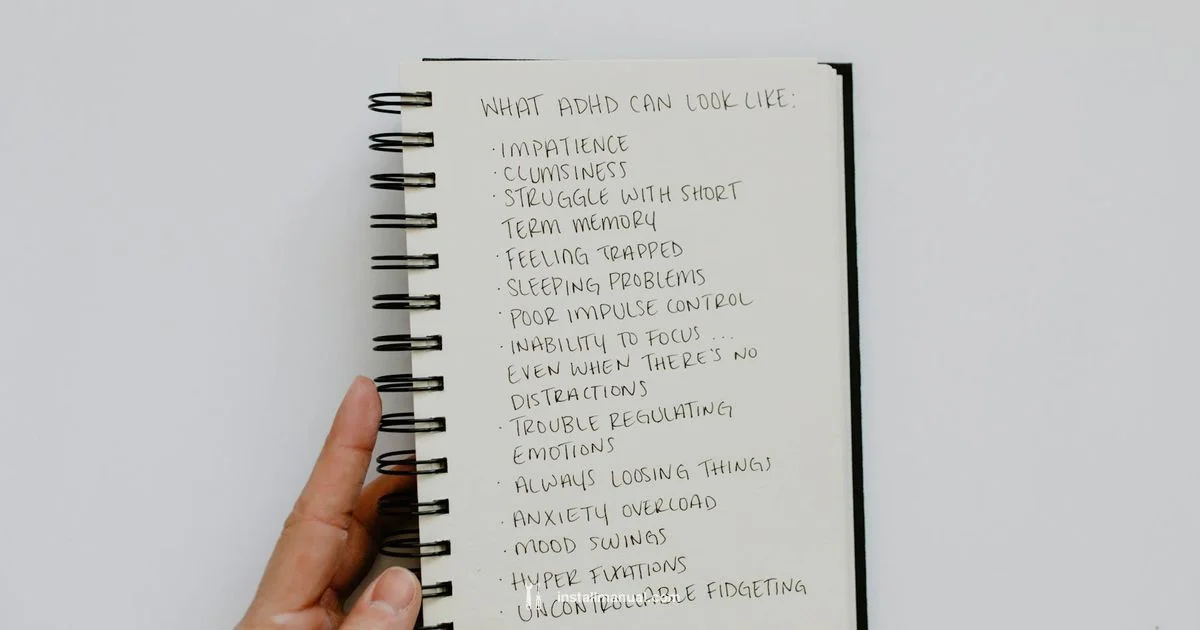 WHAT ADHD CAN LOOK LIKE:
· IMPATIENCE
· CLUMSINESS
· STRUGGLE WITH SHORT
TERM MEMORY
· FEELING TRAPPED
· SLEEPING PROBLEMS
· POOR IMPULSE CONTROL
· INABILITY TO FOCUS ...
EVEN WHEN THERE'S NO
DISTRACTIONS
· TROUBLE REGULATING
EMOTIONS
· ALWAYS LOOSING THINGS
· ANXIETY OVERLOAD
· MOOD SWINGS
· HYPER FIXATIONS
· UNCONTROLLABLE FIDGETING
installmanual.com